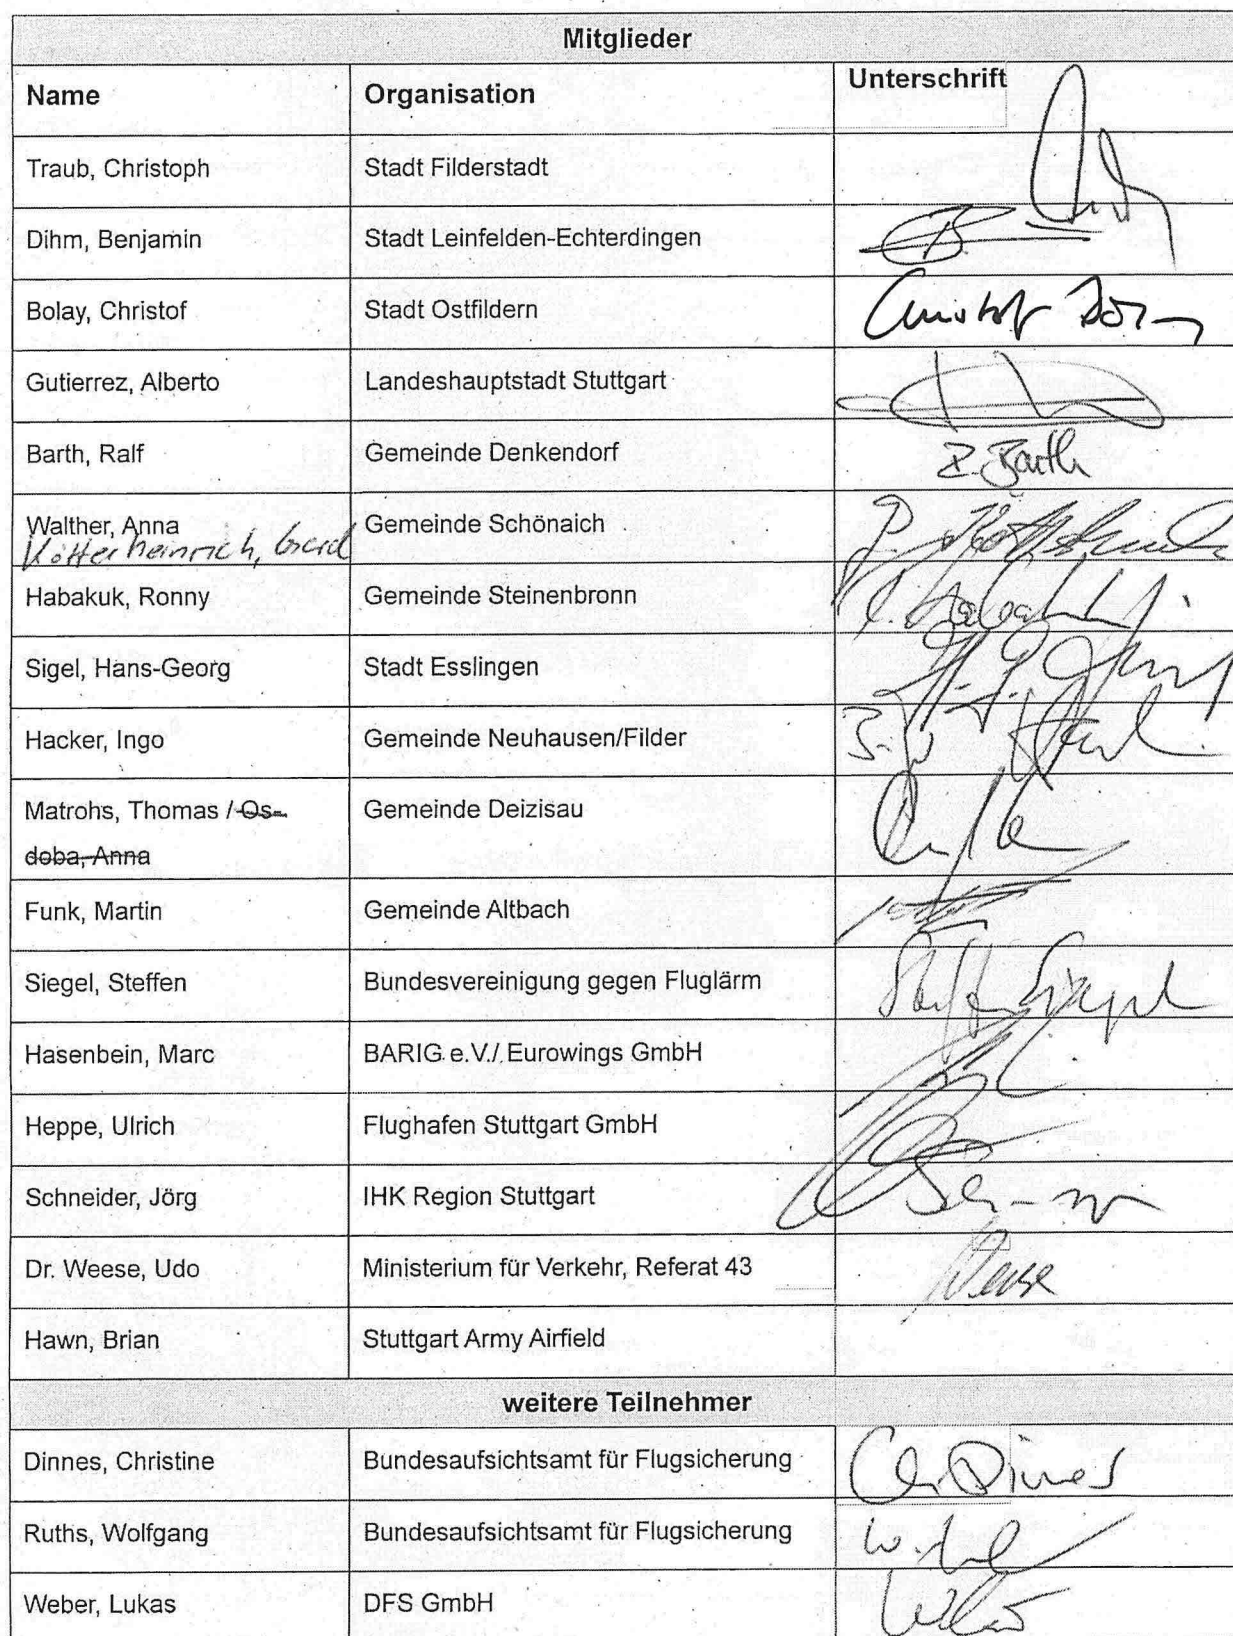 Mitglieder
Name Organisation Unterschrift
Traub, Christoph Stadt Filderstadt
Dihm, Benjamin Stadt Leinfelden-Echterdingen
Bolay, Christof Stadt Ostfildern Christof
Gutierrez, Alberto Landeshauptstadt Stuttgart
Barth, Ralf Gemeinde Denkendorf R. Barth
Walther, Anna Gemeinde Schönaich
Kötterheinrich, Gerd
Habakuk, Ronny Gemeinde Steinenbronn
Sigel, Hans-Georg Stadt Esslingen
Hacker, Ingo Gemeinde Neuhausen/Filder
Matrohs, Thomas / Os- Gemeinde Deizisau
doba, Anna
Funk, Martin Gemeinde Altbach
Siegel, Steffen Bundesvereinigung gegen Fluglärm Steffen Siegel
Hasenbein, Marc BARIG e.V./ Eurowings GmbH
Heppe, Ulrich Flughafen Stuttgart GmbH
Schneider, Jörg IHK Region Stuttgart
Dr. Weese, Udo Ministerium für Verkehr, Referat 43 Weese
Hawn, Brian Stuttgart Army Airfield
weitere Teilnehmer
Dinnes, Christine Bundesaufsichtsamt für Flugsicherung Ch. Dinnes
Ruths, Wolfgang Bundesaufsichtsamt für Flugsicherung
Weber, Lukas DFS GmbH